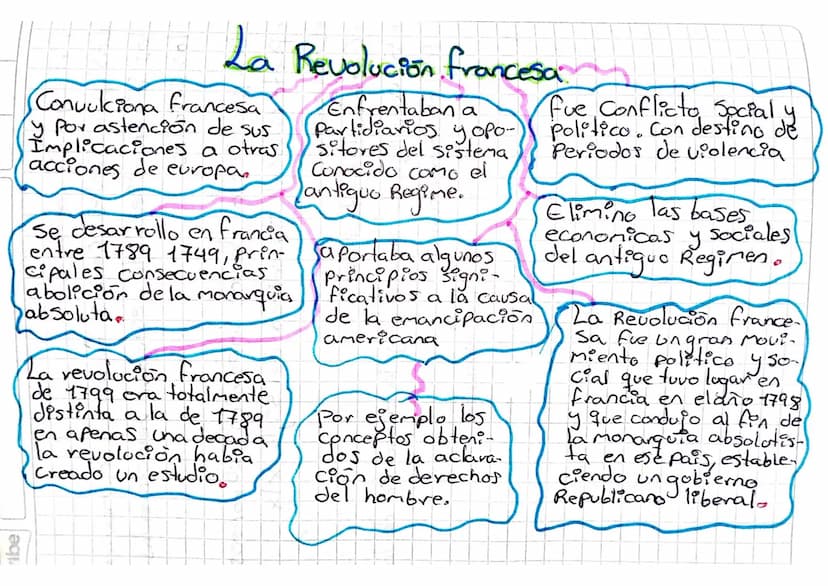 La Revolución francesa
Convulciona francesa
y por astención de sus
Implicaciones a otras
acciones de europa.
Enfrentaban a
Partidiarios y opo-
sitores del sistema
Conocido como el
antiguo Regime.
Fue Conflicto Social y
político. Con destino de
Periodos de violencia
Se desarrollo en francia
entre 1789 1749, prin-
cipales consecuencias
abolición de la monarquia
absoluta.
aportaba algunos
principios signi-
ficativos a la causa
de la emancipación
americana
Elimino las bases
economicas y sociales
del antiguo Regimen.
La revolución francesa
de 1799 era totalmente
distinta a la de 1789
en apenas una decada
la revolución habia
Creado un estudio.
Por ejemplo los
conceptos obteni-
dos de la aclara-
ción de derechos
del hombre.
La Revolución france-
sa fue un gran movi-
miento político y so-
cial que tuvo lugar en
francia en el año 1798
y que condujo al fin de
la monarquía absolutis-
ta en ese país, estable-
ciendo un gobierno
Republicano liberal.
ribe